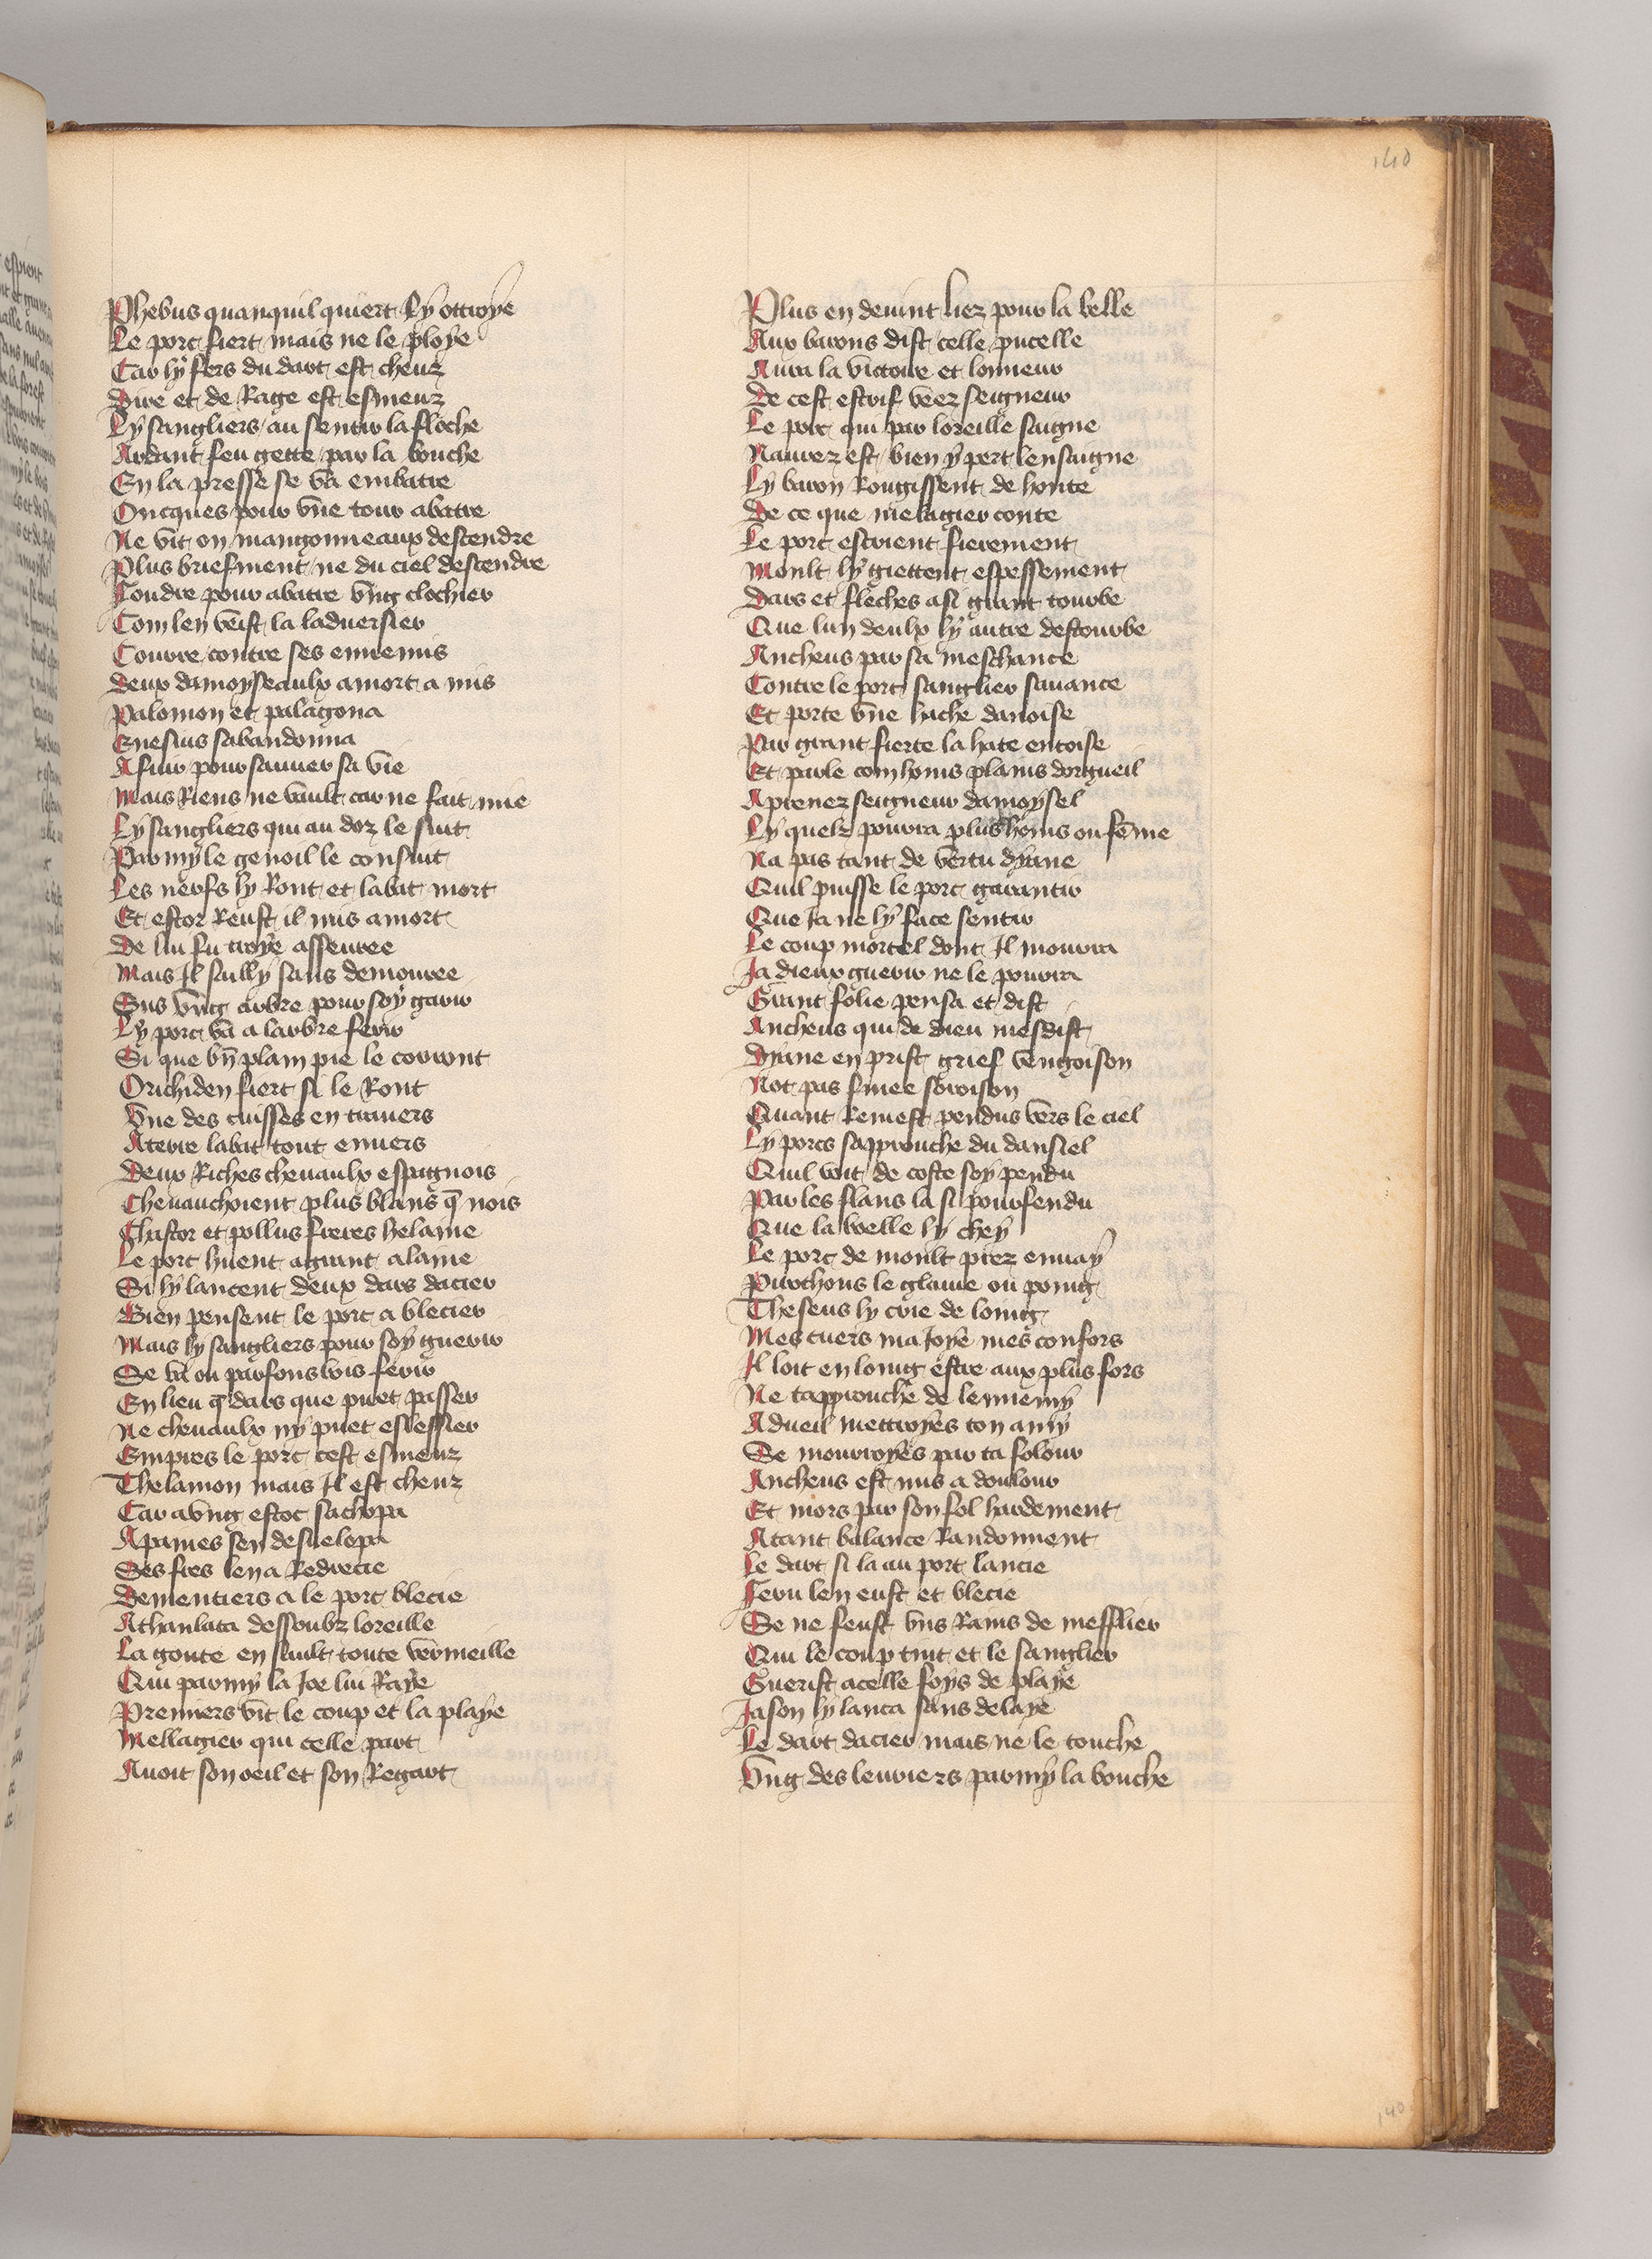 140
Phebus quanquil quiert Ly ottroye
Le porc fiert mais ne le ploye
Car ly fers du dart est cheuz
Dire et de Rage est esmeuz
Ly sangliers au sentir la floche
Ardant feu gette par la bouche
En la presse se va embatre
Oncques pour vne tour abatre
Ne vit on mangonneaux descendre
Plus briefment ne du ciel descendre
Foudre pour abatre vng clochier
Com len veist la laduersier
Courre contre ses ennemis
Deux damoyseaulx a mort a mis
Palomon et palagona
Enesius sabandonna
A fuir pour sauuer sa vie
Mais Riens ne vault car ne fait mie
Ly sangliers qui au doz le suit
Parmy le genoil le consuit
Les nerfs ly Ront et labat mort
Et estor Reust il mis a mort
De lui fu troye assentee
Mais Il sailly sans demouree
Sus vng arbre pour soy garir
Ly porc va a larbre ferir
Si que bn plain pie le corront
Orichiden fiert si le Ront
Vne des cuisses en trauers
A terre labat tout enuers
Deux Riches cheuaulx espagnois
Cheuauchoient plus blans q̄ nois
Chastor et pollus freres helaine
Le porc huent a grant alaine
Si ly lancent deux dars dacier
Bien pensent le porc a blecier
Mais ly sangliers pour soy guerir
Se va ou parfons bois ferir
En lieu q̄ dars que puet passer
Ne cheuaulx ny puet eslessier
Empres le porc cest esmeuz
Thelamon mais Il est cheuz
Car a vng estoc sachopa
A paines sen desuelopa
Ses fres len a Redrecie
Dementiers a le porc blecie
Athanlata dessoubz loreille
La goute en sault toute vermeille
Qui parmy la Joe lui Raye
Premiers vit le coup et la playe
Mellagier qui celle part
Auoit son oeil et son Regart
Plus en deuint liez pour la belle
Aux barons dist celle pucelle
Aura la victoire et lonneur
De cest estrif veez seigneur
Le porc qui par loreille saigne
Naurez est bien y pert lensaigne
Ly baron Rougissent de honte
De ce que melagier conte
Le porc escrient fierement
Moult ly giettent espessement
Dars et fleches a si grant tourbe
Que lun deulx ly autre destourbe
Ancheus par sa meschance
Contre le porc sanglier sauance
Et porte vne hache danoise
Par grant fierte la hate entoise
Et parle com homs plains dorgueil
Aprenez seigneur damoysel
Ly quelz pourra plus homs ou fēme
Na pas tant de vertu dyane
Quil puisse le porc garantir
Que Ja ne ly face sentir
Le coup mortel dont Il mourra
Ja dieux guerir ne le pourra
Grant folie pensa et dist
Ancheus qui de dieu mesdist
Dyane en prist grief vengoison
Not pas finee soroison
Quant Remest pendus vers le ciel
Ly porcs sapprouche du dansiel
Quil voit de coste soy pendu
Par les flans la si pourfendu
Que la boelle ly chey
Le porc de moult prez enuay
Parthons le glaiue ou poing
Theseus ly crie de loing
Mes cuers ma Joye mes confors
Il loit en loing estre aux plus fors
Ne tapprouche de lennemy
A dueil mettroyes ton amy
Se mourroyes par ta folour
Ancheus est mis a doulour
Et mors par son fol hardement
Atant balance Randonnent
Le dart si la au porc lancie
Feru len eust et blecie
Se ne feust vns Rains de mesflier
Qui le coup tint et le sanglier
Guerist acelle foys de playe
Jason ly lanca sans delaye
Le dart dacier mais ne le touche
Vng des leuriers parmy la bouche
140